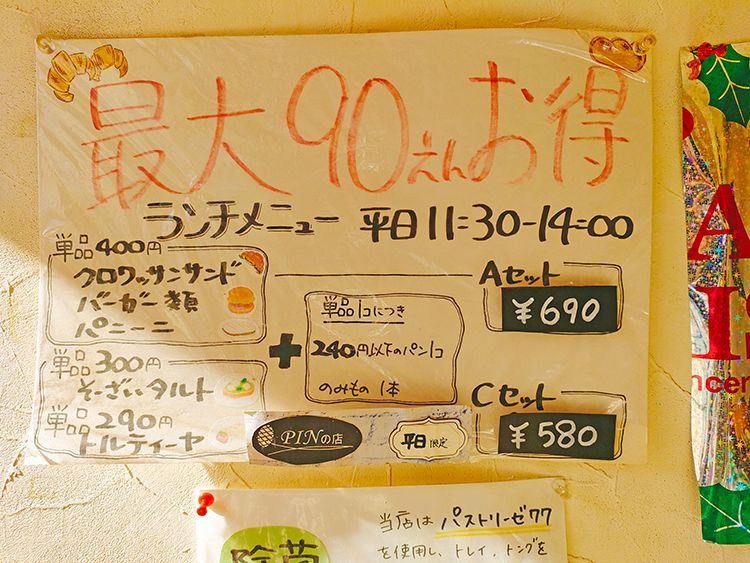 最大90えんお得
ランチメニュー 平日11:30-14:00
単品400円
クロワッサンサンド
バーガー類
パニーニ
単品300円
そーざいタルト
単品290円
トルティーヤ
+
単品1コにつき
240円以下のパン1コ
のみもの 1本
Aセット
¥690
Cセット
¥580
PINの店
平日限定
当店はパストリーゼ77
を使用し、トレイ、トングを
除菌
A
I
ncer